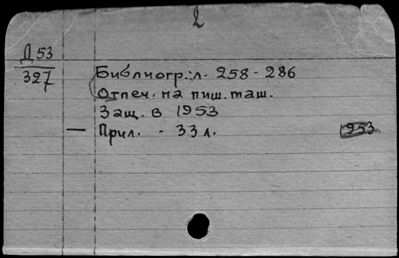 2
Д 53
327
Библиогр.: л. 258-286
Отпеч. на пиш. таш.
Защ. в 1953
— Прил. - 33 л.
1953